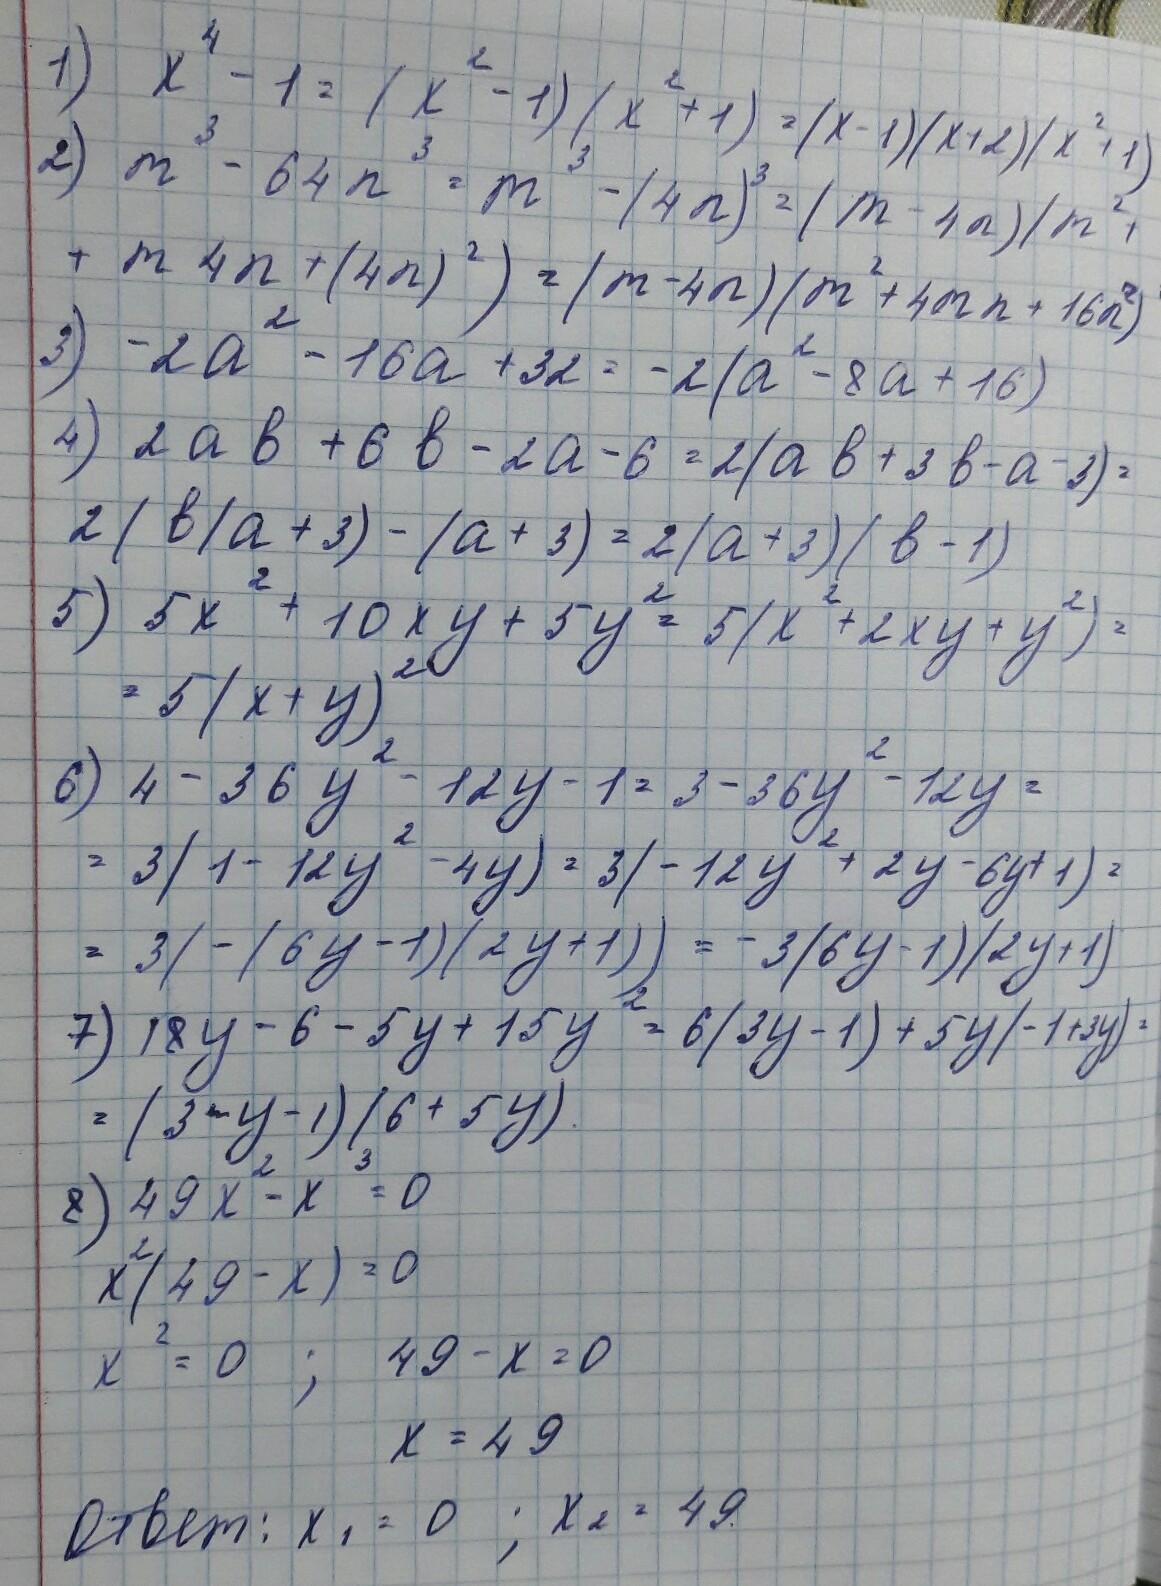 1) x⁴ - 1 = (x² - 1)(x² + 1) = (x - 1)(x + 2)(x² + 1)
2) m³ - 64n³ = m³ - (4n)³ = (m - 4n)(m² +
+ m 4n + (4n)²) = (m - 4n)(m² + 4mn + 16n²)
3) -2a² - 16a + 32 = -2(a² - 8a + 16)
4) 2ab + 6b - 2a - 6 = 2(ab + 3b - a - 3) =
2(b(a + 3) - (a + 3) = 2(a + 3)(b - 1)
5) 5x² + 10xy + 5y² = 5(x² + 2xy + y²) =
= 5(x + y)²
6) 4 - 36y² - 12y - 1 = 3 - 36y² - 12y =
= 3(1 - 12y² - 4y) = 3(-12y² + 2y - 6y + 1) =
= 3(-(6y - 1)(2y + 1)) = -3(6y - 1)(2y + 1)
7) 18y - 6 - 5y + 15y² = 6(3y - 1) + 5y(-1 + 3y) =
= (3y - 1)(6 + 5y).
8) 49x² - x³ = 0
x²(49 - x) = 0
x² = 0 ; 49 - x = 0
x = 49
Ответ: x₁ = 0 ; x₂ = 49.